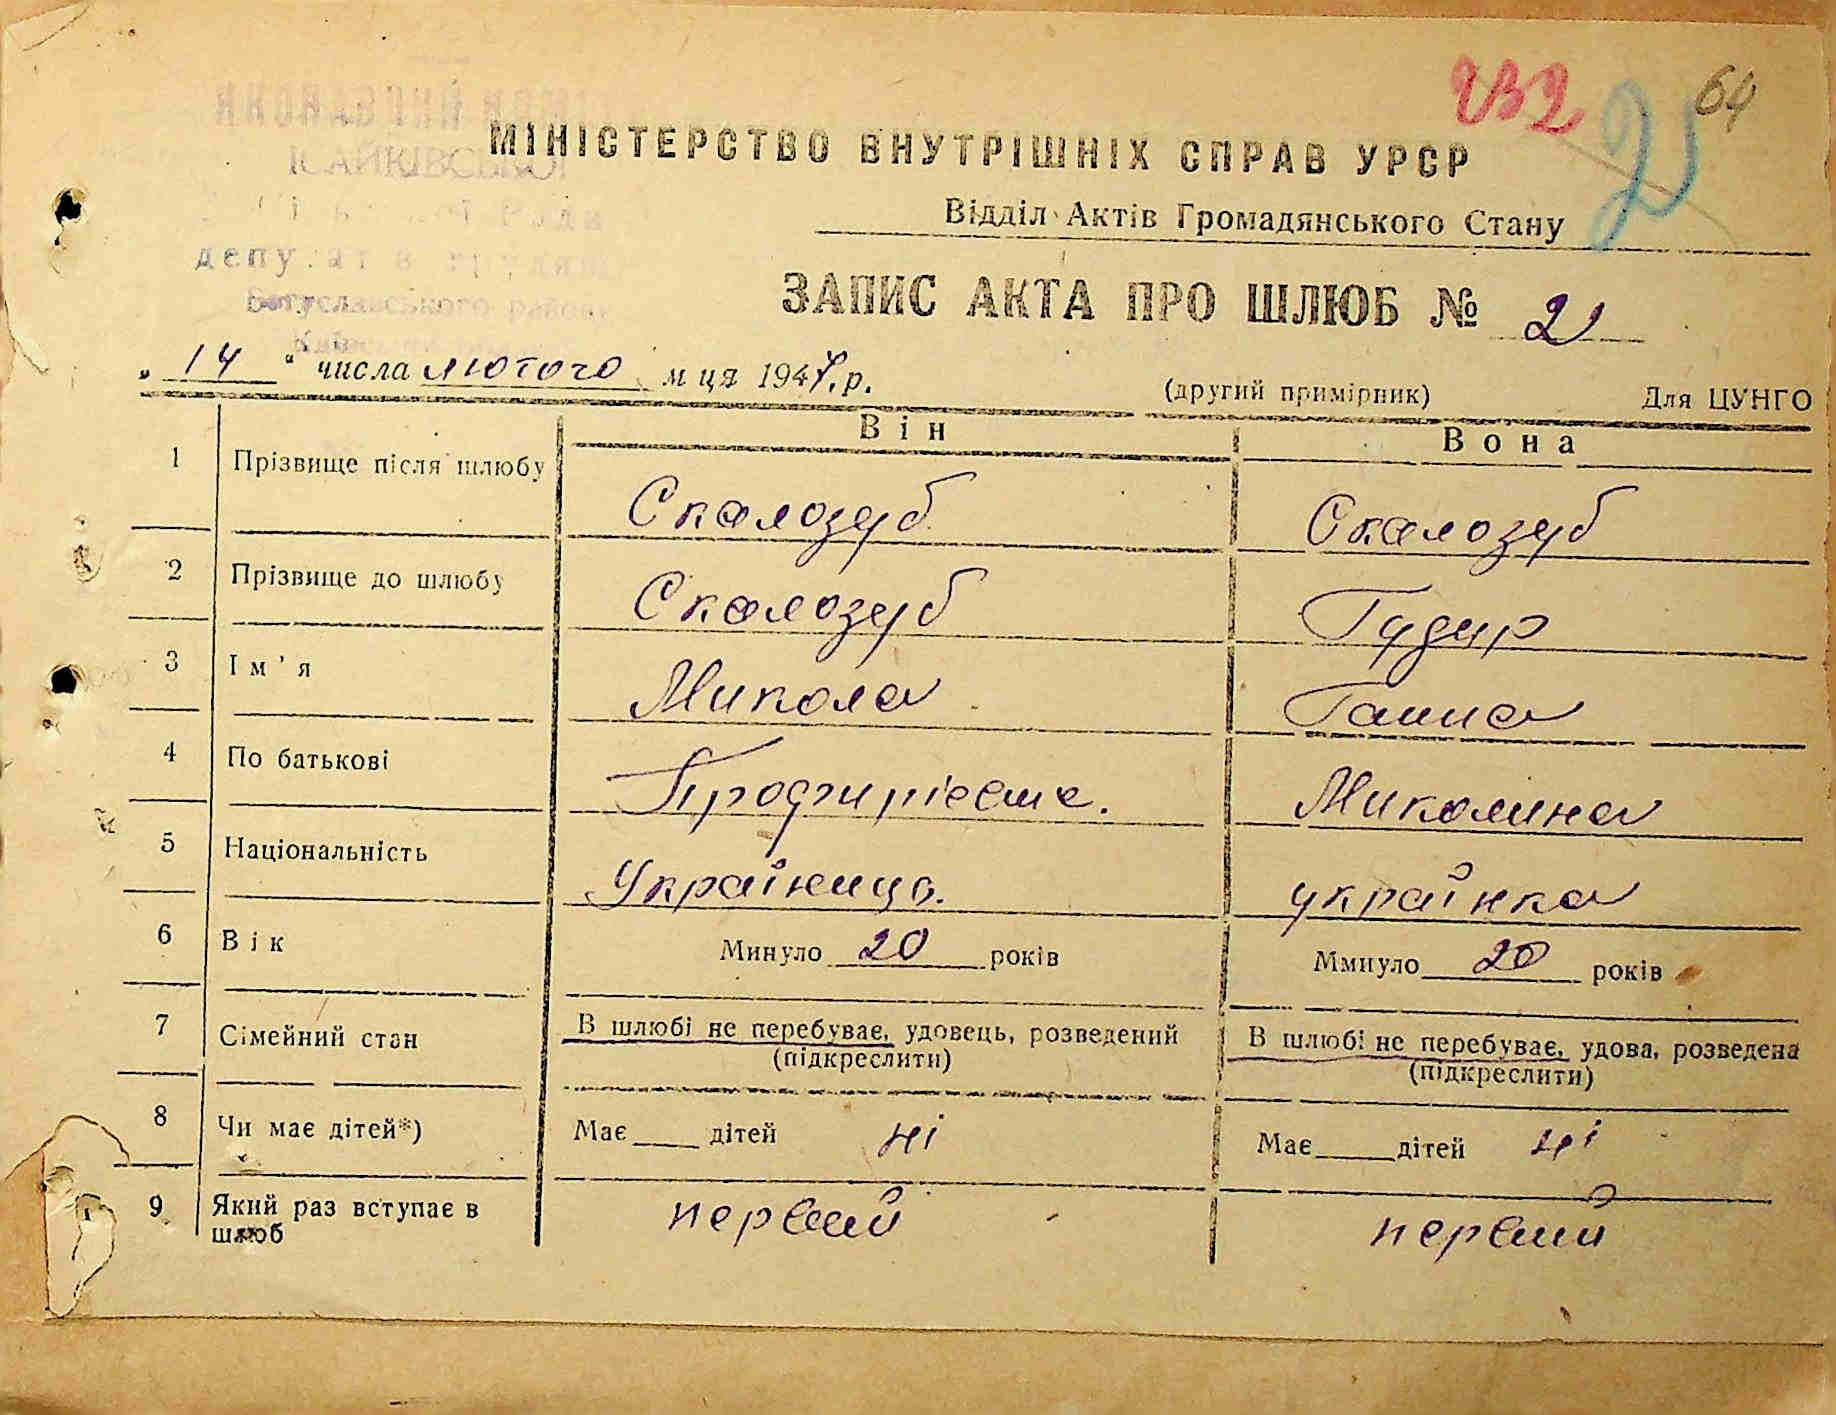 232 2 64
МІНІСТЕРСТВО ВНУТРІШНІХ СПРАВ УРСР
ІСАЙКІВСЬКОЇ
Відділ Актів Громадянського Стану
Богуславського району
ЗАПИС АКТА ПРО ШЛЮБ № 2
„ 14 “ числа лютого м ця 1947.р.
(другий примірник) Для ЦУНГО
Він Вона
1 Прізвище після шлюбу Скалозуб Скалозуб
2 Прізвище до шлюбу Скалозуб Гудир
3 Ім'я Микола Ганна
4 По батькові Профирієвич. Миколина
5 Національність Українець. українка
6 Вік Минуло 20 років Ммнуло 20 років
7 Сімейний стан В шлюбі не перебуває, удовець, розведений В шлюбі не перебуває, удова, розведена
(підкреслити) (підкреслити)
8 Чи має дітей*) Має дітей ні Має дітей ні
9 Який раз вступає в первий первий
шлюб